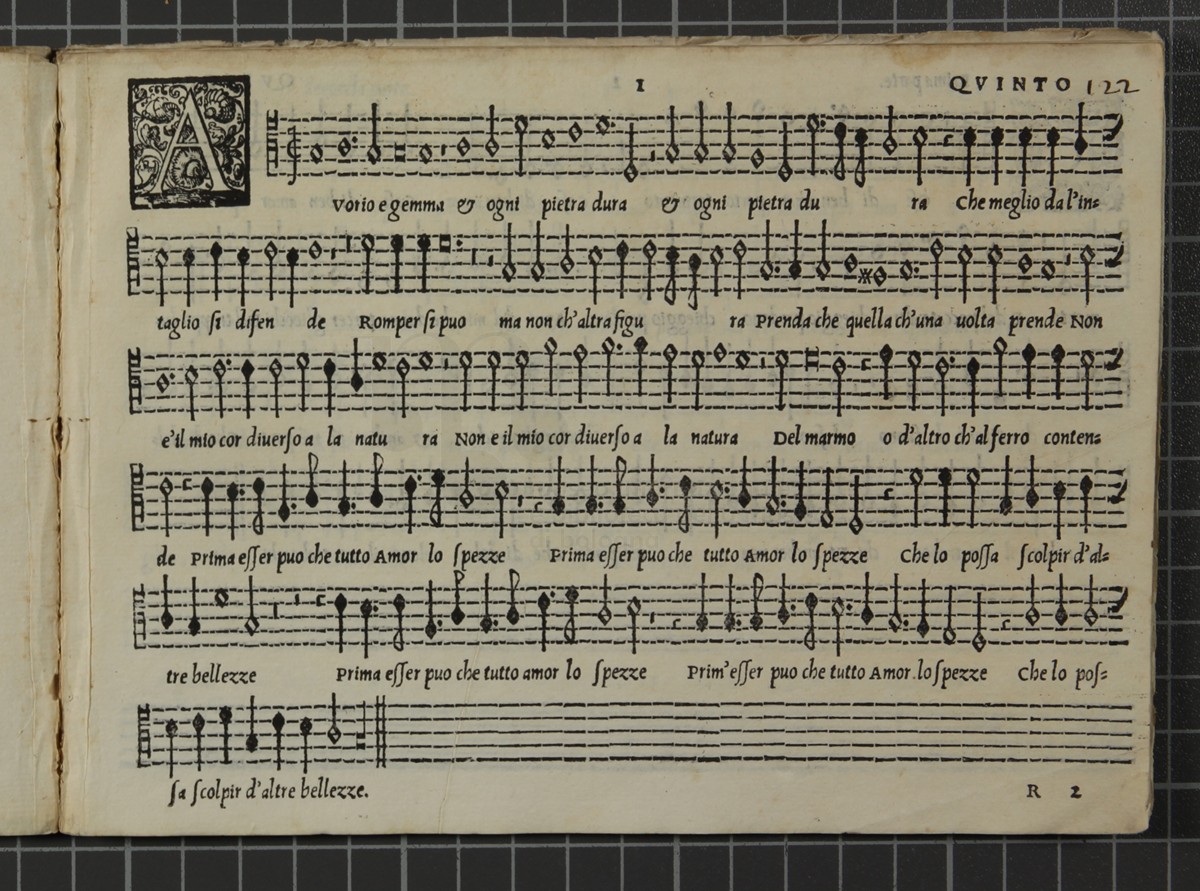 1 QVINTO 122
AVorio e gemma & ogni pietra dura & ogni pietra du ra Che meglio da l'in=
taglio si difen de Romper si puo ma non ch'altra figu ra Prenda che quella ch'una uolta prende Non
e'il mio cor diuerſo a la natu ra Non e il mio cor diuerſo a la natura Del marmo o d'altro ch'al ferro conten=
de Prima eſſer puo che tutto Amor lo ſpezze Prima eſſer puo che tutto Amor lo ſpezze Che lo poſſa ſcolpir d'al=
tre bellezze Prima eſſer puo che tutto amor lo ſpezze Prim'eſſer puo che tutto Amor lo ſpezze Che lo poſ=
ſa ſcolpir d'altre bellezze.
R 2